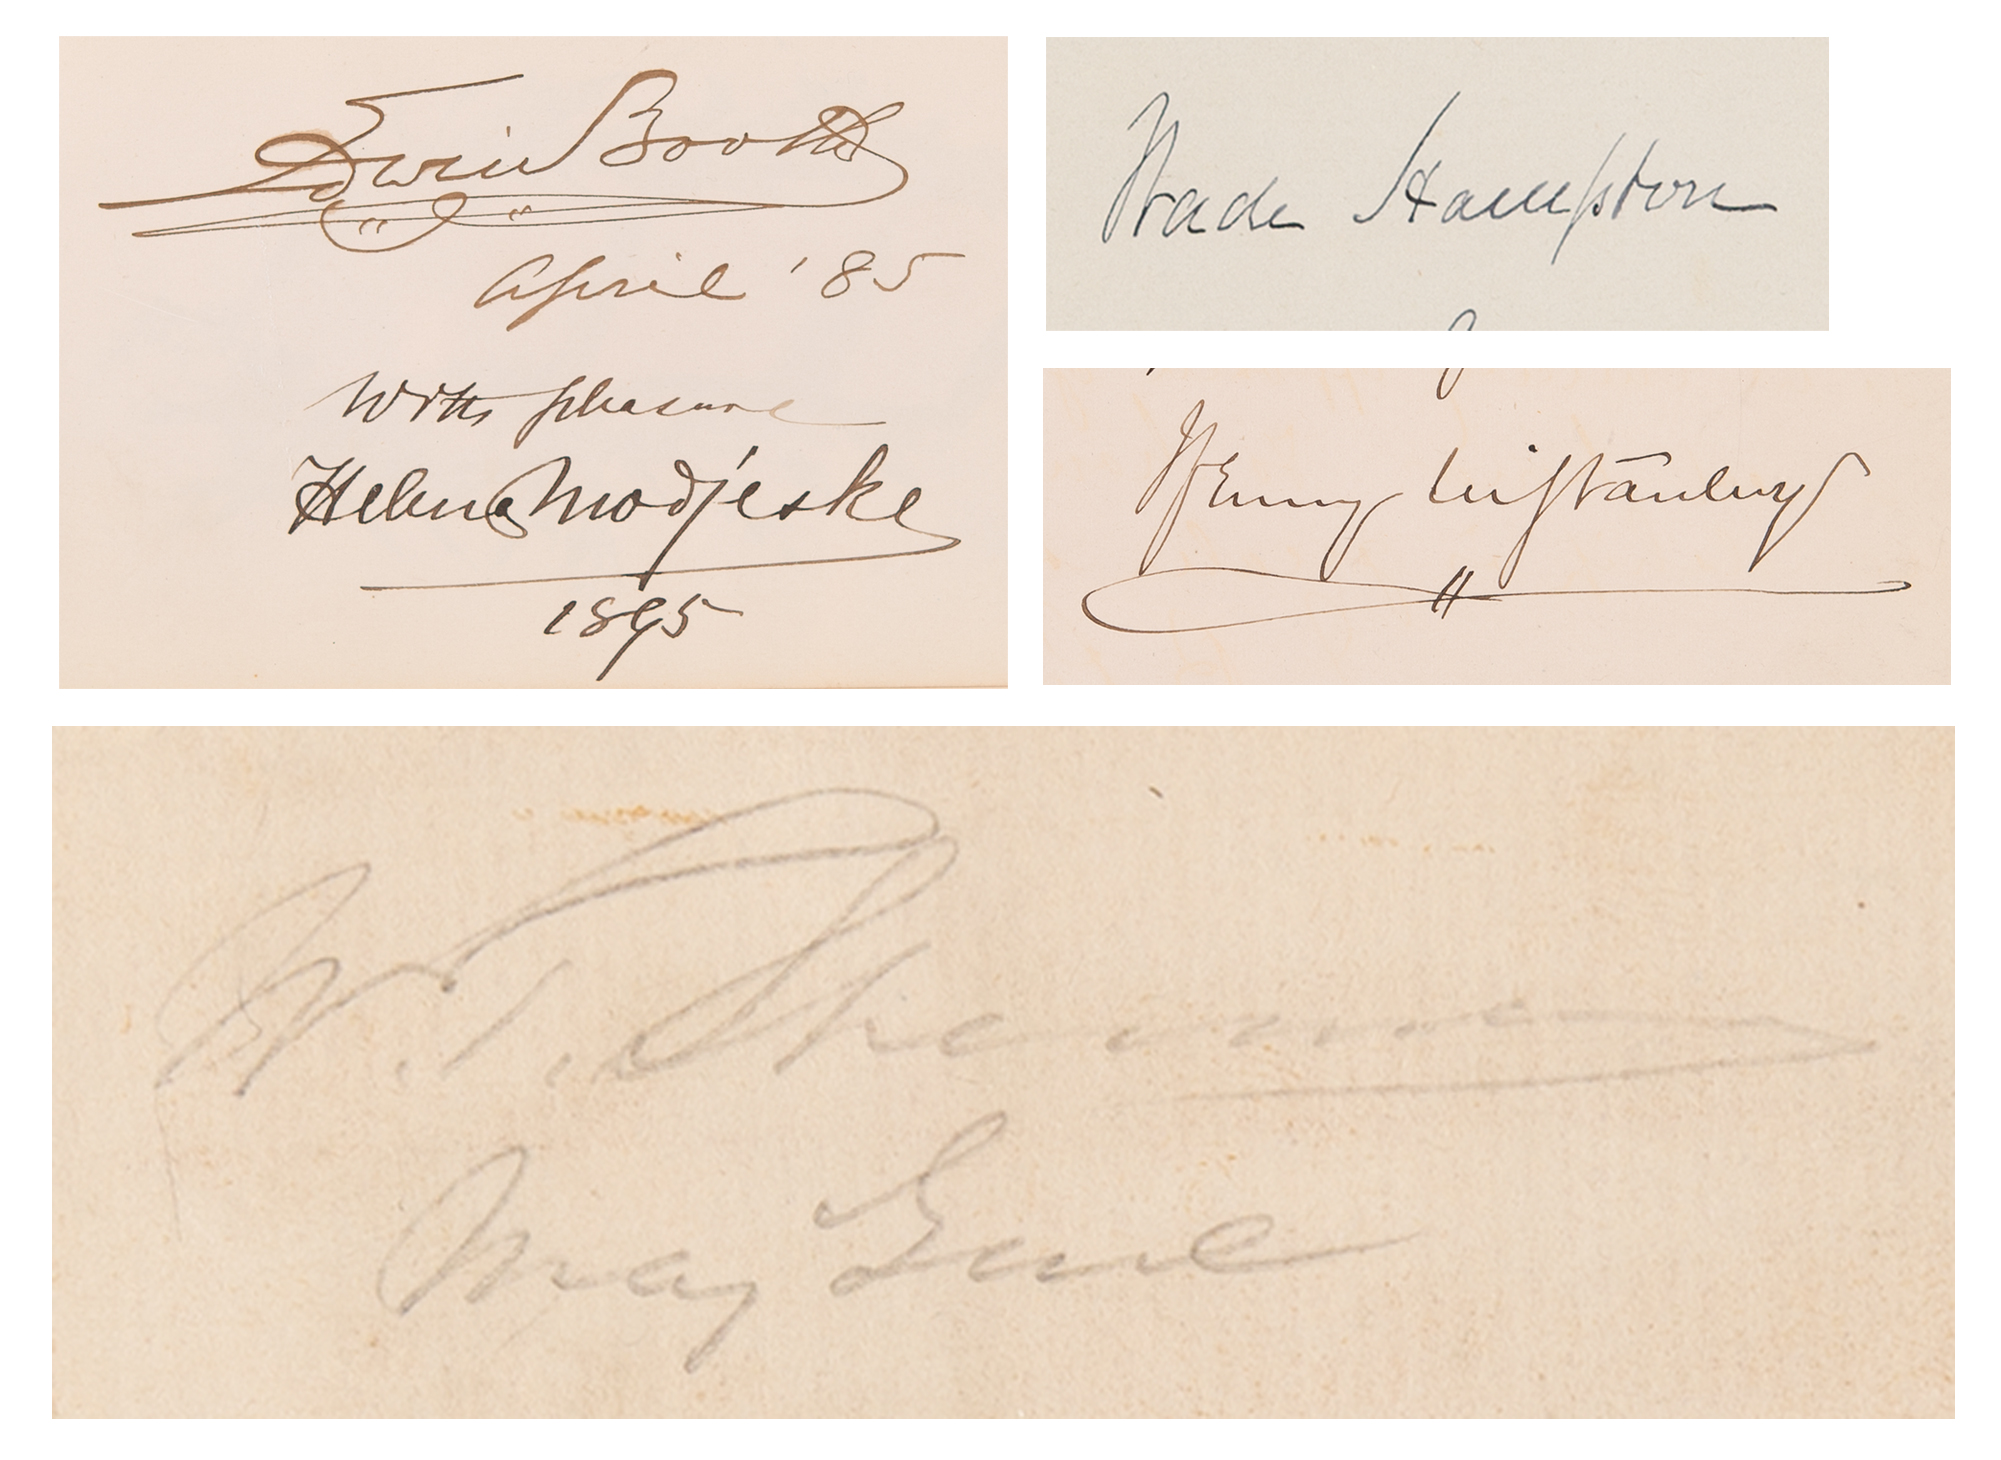 Edwin Booth
April '85
With pleasure
Helena Modjeska
1895
Wade Hampton
W. T. Sherman
May